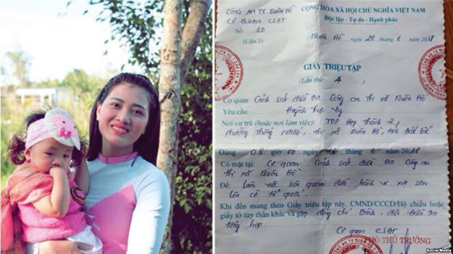 CỘNG HÒA XÃ HỘI CHỦ NGHĨA VIỆT NAM
Độc lập - Tự do - Hạnh phúc
CÔNG AN TX BUÔN HỒ
CƠ QUAN CSĐT
Số
Buôn Hồ
GIẤY TRIỆU TẬP
(Lần thứ 4)
Cơ quan: Cảnh sát điều tra Công an thị xã Buôn Hồ
Yêu cầu: Huỳnh Thục Vy
Nơi cư trú (hoặc nơi làm việc): TDP
phường Thống Nhất, thị xã Buôn Hồ, tỉnh Đắk Lắk
Có mặt tại: Cơ quan Cảnh sát điều tra Công an
thị xã Buôn Hồ
Để: Làm việc liên quan đến hành vi xịt sơn
lên cờ tổ quốc
Khi đến mang theo Giấy triệu tập này, CMND/CCCD/Hộ chiếu hoặc
giấy tờ tùy thân khác và gặp đồng chí
Cơ quan CSĐT
PHÓ THỦ TRƯỞNG
Social Media